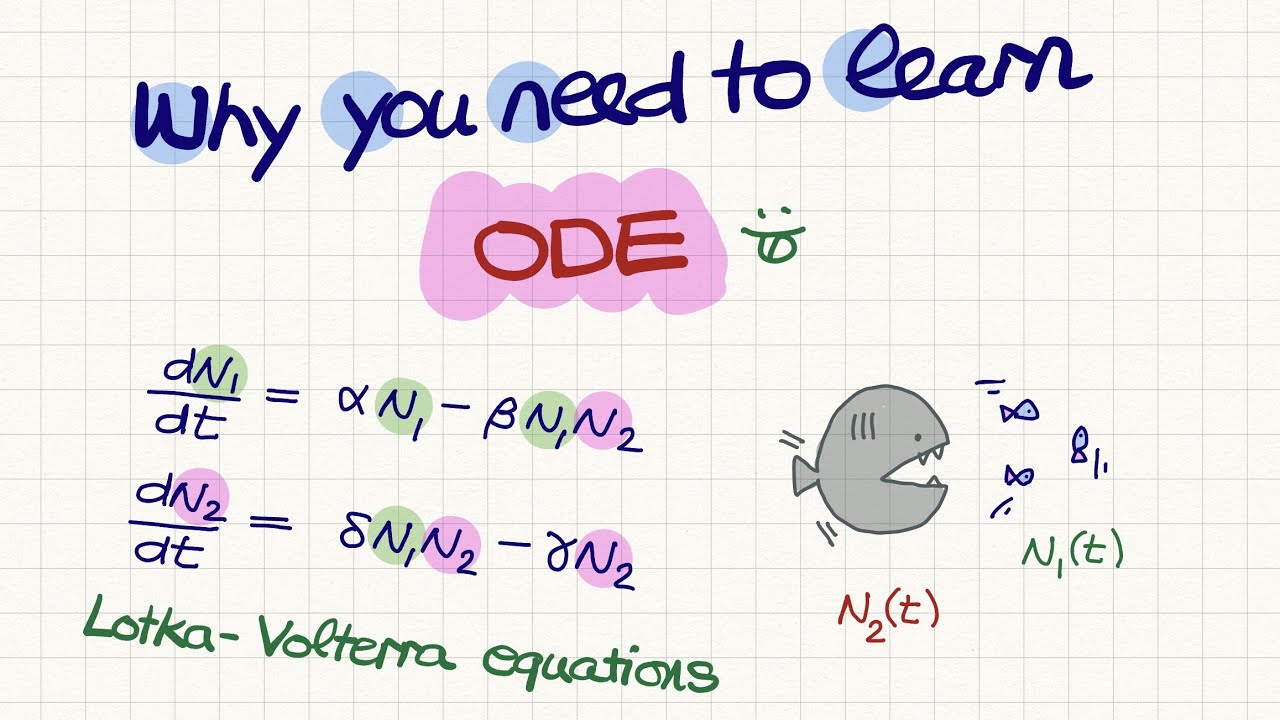 Why you need to learn
ODE
dN₁/dt = αN₁ - βN₁N₂
dN₂/dt = δN₁N₂ - γN₂
Lotka-Volterra equations
N₁(t)
N₂(t)